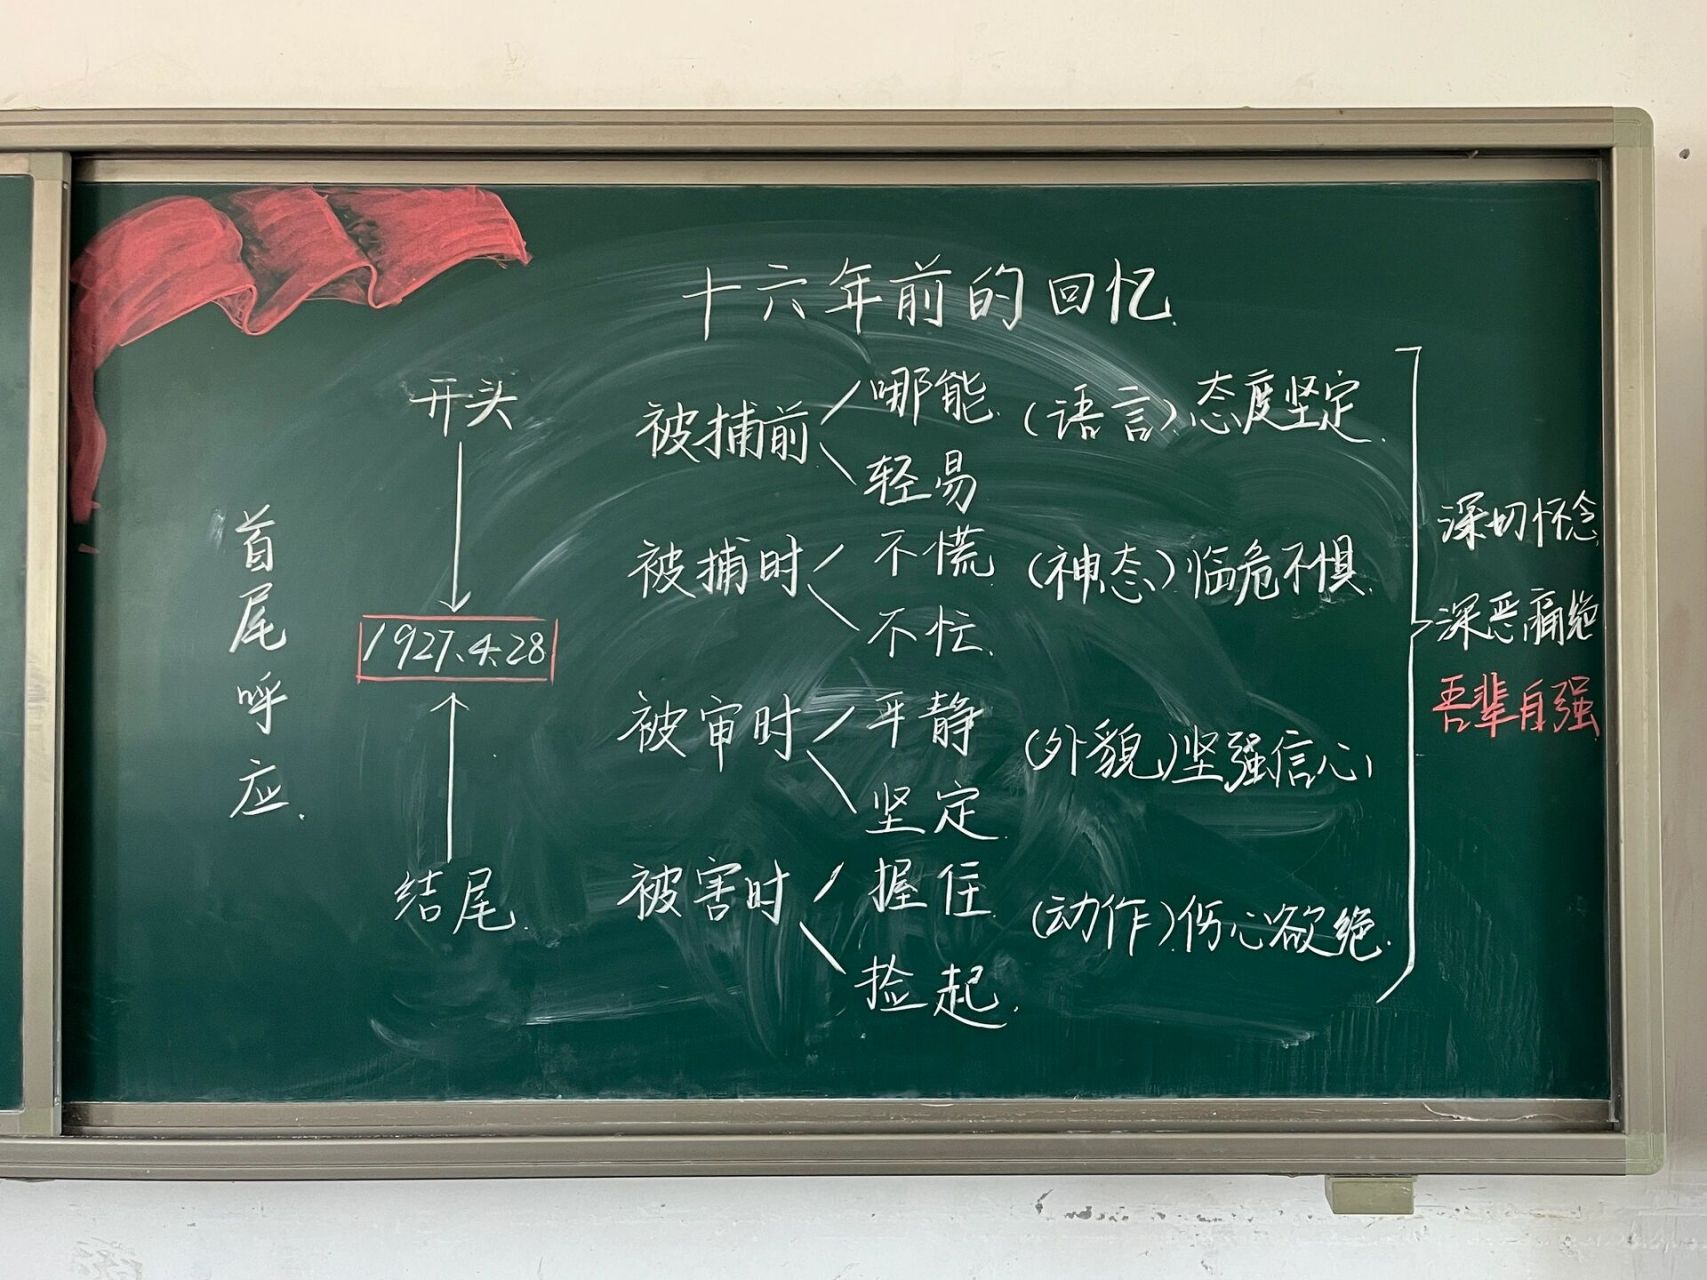 十六年前的回忆
首尾呼应.
开头
1927.4.28
结尾.
被捕前
哪能.
轻易
(语言)态度坚定.
被捕时
不慌
不忙.
(神态)临危不惧.
被审时
平静
坚定.
(外貌)坚强信心
被害时
握住.
捡起.
(动作)伤心欲绝.
深切怀念
深恶痛绝
吾辈自强